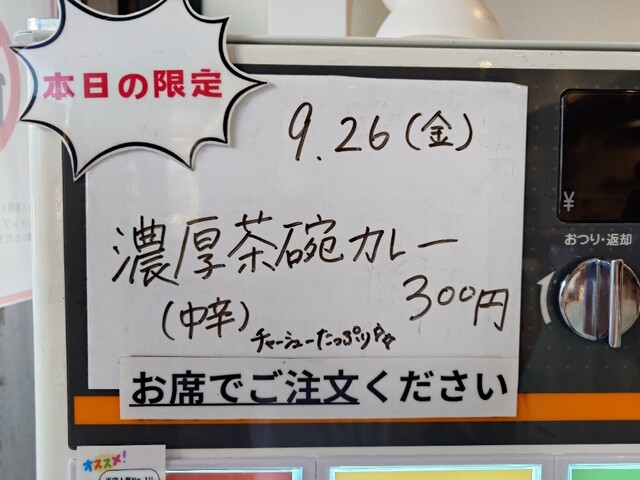 本日の限定
9.26(金)
濃厚茶碗カレー
(中辛)
300円
チャーシューたっぷり☆☆
お席でご注文ください
¥
おつり・返却
オススメ!